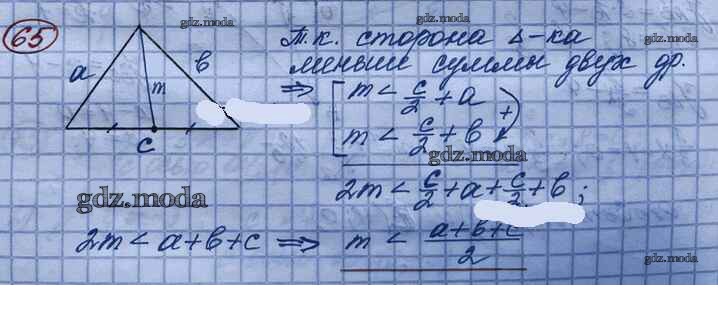 65
gdz.moda
gdz.moda
gdz.moda
a
b
m
c
Т.к. сторона Δ-ка
меньше суммы двух др.
⇒ [ m < c/2 + a
m < c/2 + b
+
gdz.moda
2m < c/2 + a + c/2 + b;
gdz.moda
gdz.moda
2m < a+b+c ⇒ m < (a+b+c)/2
gdz.moda